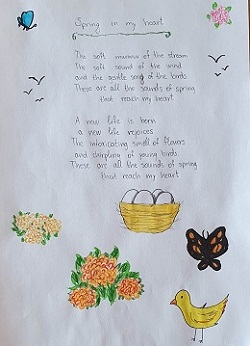 Spring in my heart
The soft murmur of the stream
The soft sound of the wind
and the gentle song of the birds
These are all the sounds of spring
that reach my heart
A new life is born
a new life rejoices
The intoxicating smell of flowers
and chirping of young birds.
These are all the sounds of spring
that reach my heart